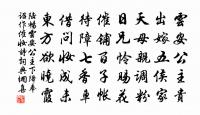 雲安公主貴
出嫁五侯家
天母親調粉
日兄憐賜花
催鋪百子帳
待障七香車
借問妝成未
東方欲曉霞
陸暢雲安公主下降奉
詔作催妝詩詞典網書